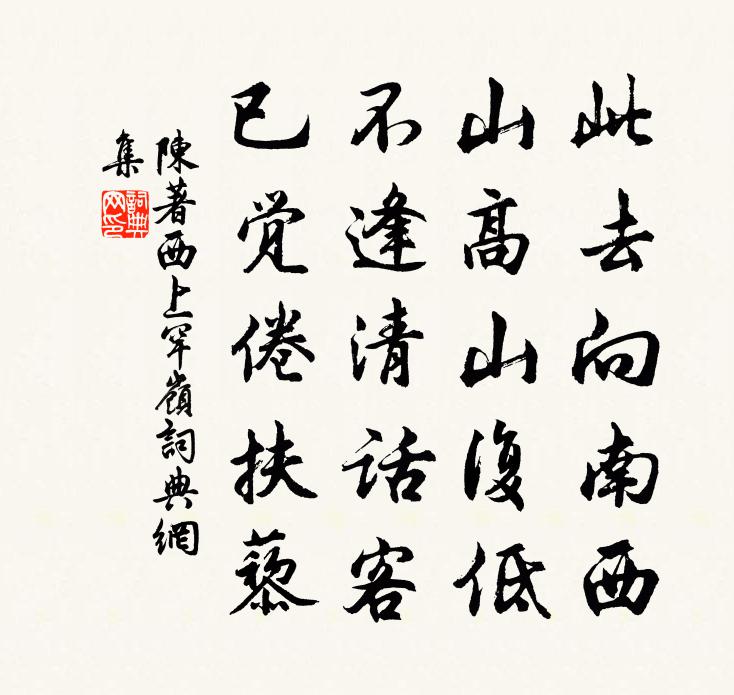 此去向南西
山高山復低
不逢清话客
已觉倦扶藜
陳著西上罕嶺詞典網
集
詞典
网印